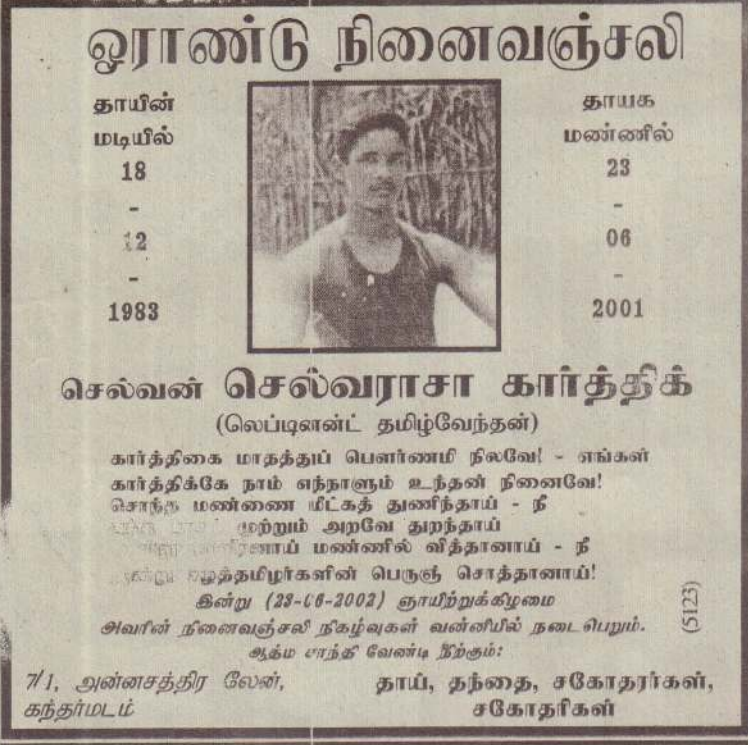 ஓராண்டு நினைவஞ்சலி
தாயின்
மடியில்
18
-
12
-
1983
தாயக
மண்ணில்
23
-
06
-
2001
செல்வன் செல்வராசா கார்த்திக்
(லெப்டினன்ட் தமிழ்வேந்தன்)
கார்த்திகை மாதத்துப் பௌர்ணமி நிலவே! - எங்கள்
கார்த்திக்கே நாம் எந்நாளும் உந்தன் நினைவே!
சொந்த மண்ணை மீட்கத் துணிந்தாய் - நீ
முற்றும் அறவே துறந்தாய்
மண்ணில் வித்தானாய் - நீ
ஈழத்தமிழர்களின் பெருஞ் சொத்தானாய்!
இன்று (23-06-2002) ஞாயிற்றுக்கிழமை
அவரின் நினைவஞ்சலி நிகழ்வுகள் வன்னியில் நடைபெறும்.
ஆத்ம சாந்தி வேண்டி நிற்கும்:
7/1, அன்னசத்திர லேன்,
கந்தர்மடம்
தாய், தந்தை, சகோதரர்கள்,
சகோதரிகள்
(5123)